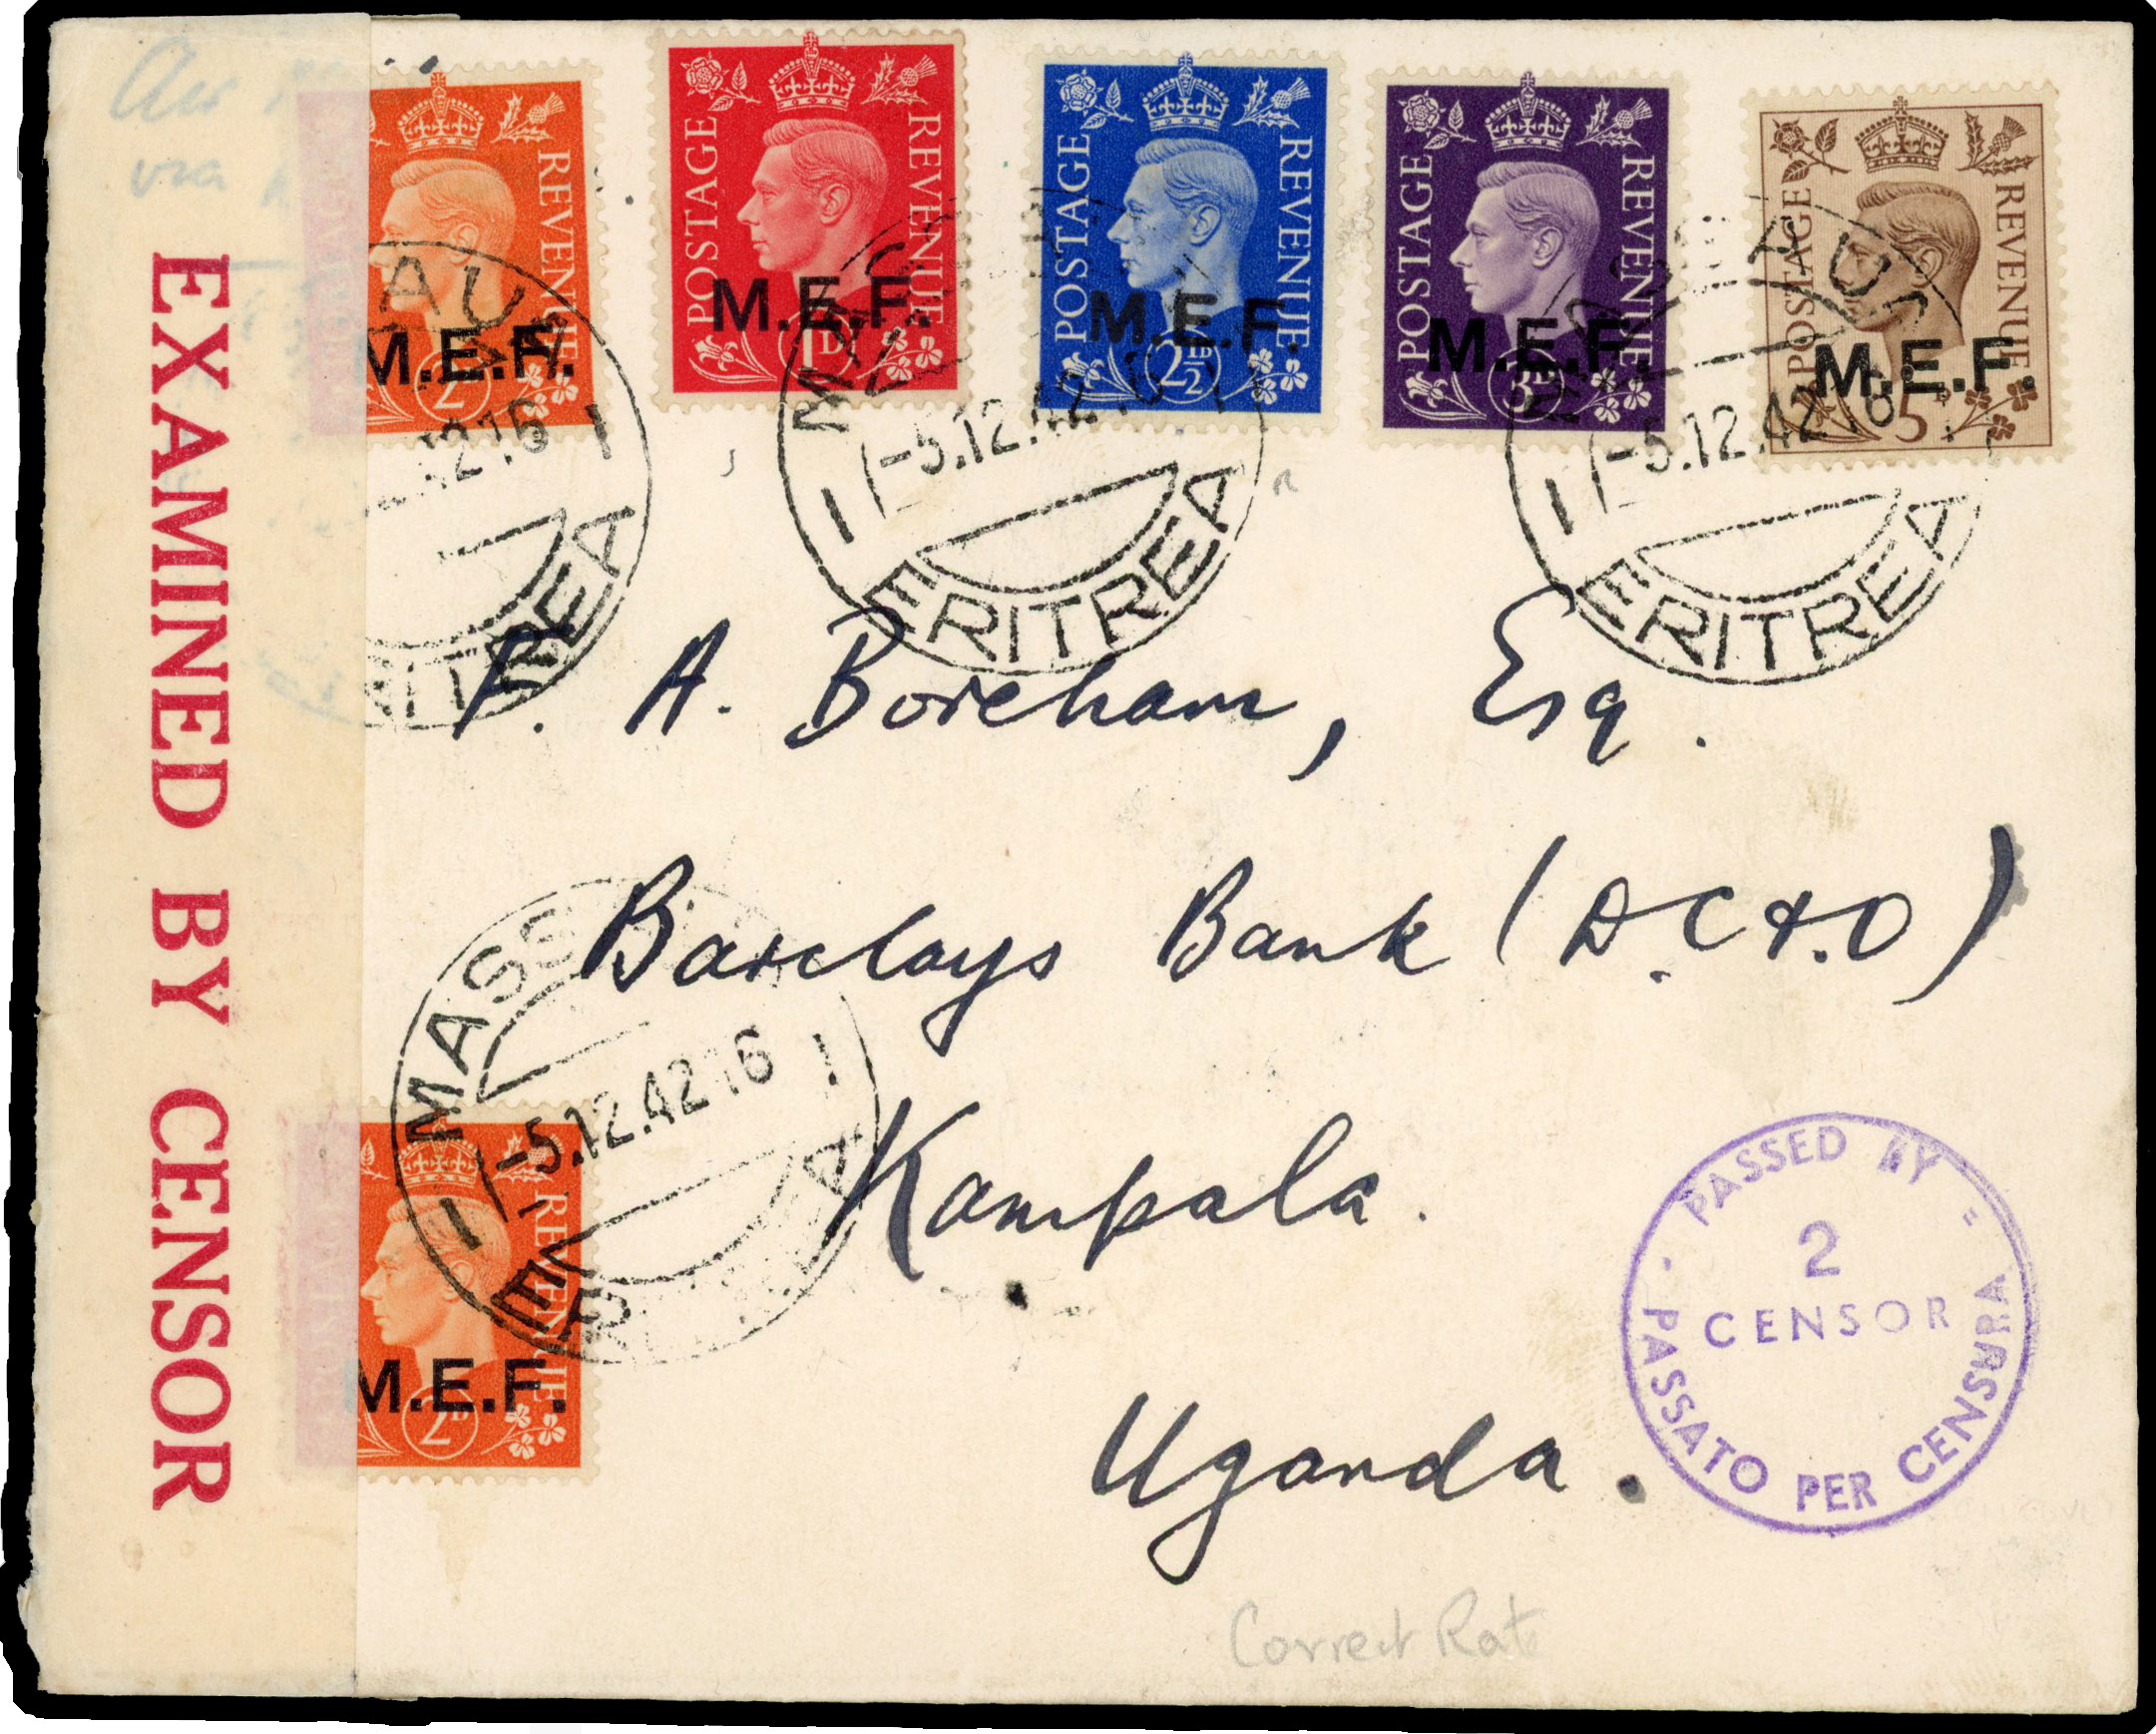 Air
via
EXAMINED BY CENSOR
REVENUE
M.E.F.
2D
POSTAGE REVENUE
M.E.F.
1D
POSTAGE REVENUE
M.E.F.
2½D
POSTAGE REVENUE
M.E.F.
3D
POSTAGE REVENUE
M.E.F.
5D
MASSAUA
-5.12.42.16
ERITREA
MASSAUA
-5.12.42.16
ERITREA
ERITREA
A. Boreham, Esq.
Barclays Bank (D.C&.O)
Kampala.
Uganda.
MASS
-5.12.42 16
ERITREA
REVENUE
M.E.F.
2D
PASSED BY
2
CENSOR
PASSATO PER CENSURA
Correct Rate